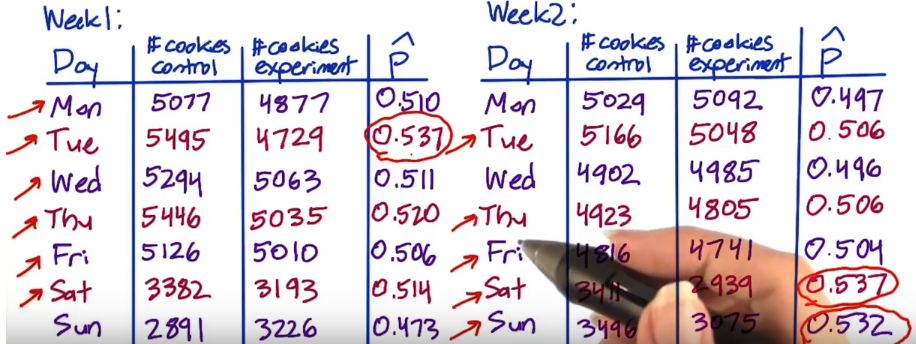 Week1:
Day #cookies control #cookies experiment p̂
Mon 5077 4877 0.510
Tue 5495 4729 0.537
Wed 5294 5063 0.511
Thu 5446 5035 0.520
Fri 5126 5010 0.506
Sat 3382 3193 0.514
Sun 2891 3226 0.473
Week2:
Day #cookies control #cookies experiment p̂
Mon 5029 5092 0.497
Tue 5166 5048 0.506
Wed 4902 4985 0.496
Thu 4923 4805 0.506
Fri 4816 4741 0.504
Sat 3411 2939 0.537
Sun 3496 3075 0.532